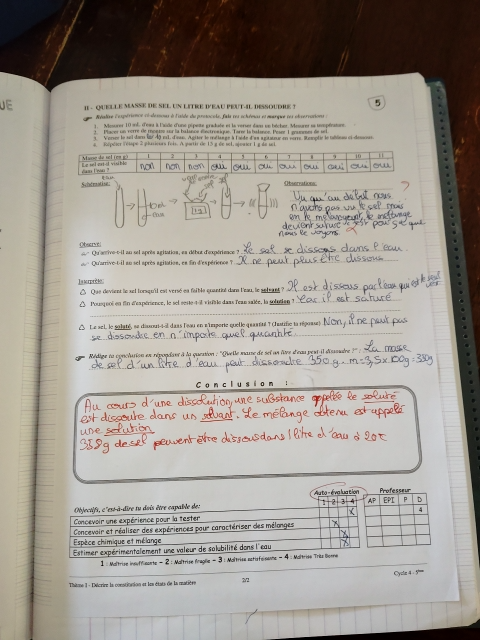 UE
II - QUELLE MASSE DE SEL UN LITRE D'EAU PEUT-IL DISSOUDRE ?
5
Réalise l'expérience ci-dessous à l'aide du protocole, fais tes schémas et marque tes observations :
1. Mesurer 10 mL d'eau à l'aide d'une pipette graduée et la verser dans un bécher. Mesurer sa température.
2. Placer un verre de montre sur la balance électronique. Tarer la balance. Peser 1 gramme de sel.
3. Verser le sel dans les 10 mL d'eau. Agiter le mélange à l'aide d'un agitateur en verre. Remplir le tableau ci-dessous.
4. Répéter l'étape 2 plusieurs fois. A partir de 13 g de sel, ajouter 1 g de sel.
Masse de sel (en g) 1 2 3 4 5 6 7 8 9 10 11
Le sel est-il visible dans l'eau ? non non non oui oui oui oui oui oui oui oui
Schématise:
Observations:
Vu qu'au début nous
n'avons pas vu le sel mais
en le mélangeant, le mélange
devient
nous le voyons
Observe:
Qu'arrive-t-il au sel après agitation, en début d'expérience ? Le sel se dissous dans l'eau
Qu'arrive-t-il au sel après agitation, en fin d'expérience ? Il ne peut plus être dissous
Interprète:
Que devient le sel lorsqu'il est versé en faible quantité dans l'eau, le solvant ? Il est dissous par l'eau qui est le
Pourquoi en fin d'expérience, le sel reste-t-il visible dans l'eau salée, la solution ? Car il est saturé
Le sel, le soluté, se dissout-t-il dans l'eau en n'importe quelle quantité ? (Justifie ta réponse) Non, il ne peut pas
se dissoudre en n'importe quel quantité.
Rédige ta conclusion en répondant à la question : "Quelle masse de sel un litre d'eau peut-il dissoudre ?" : La masse
de sel d'un litre d'eau peut dissoudre 350g. m = 3,5 x 100g = 350g
Conclusion :
Au cours d'une dissolution, une substance appelée le soluté
est dissoute dans un solvant. Le mélange obtenu est appelé
une solution
358g de sel peuvent être dissous dans 1 litre d'eau à 20°C
Auto-évaluation
Professeur
Objectifs, c'est-à-dire tu dois être capable de: 1 2 3 4 AP EPI P D
Concevoir une expérience pour la tester X 4
Concevoir et réaliser des expériences pour caractériser des mélanges X
Espèce chimique et mélange X
Estimer expérimentalement une valeur de solubilité dans l'eau X
1 : Maîtrise insuffisante – 2 : Maîtrise fragile – 3 : Maîtrise satisfaisante – 4 : Maîtrise Très Bonne
Thème 1 - Décrire la constitution et les états de la matière
2/2
Cycle 4 - 5ème